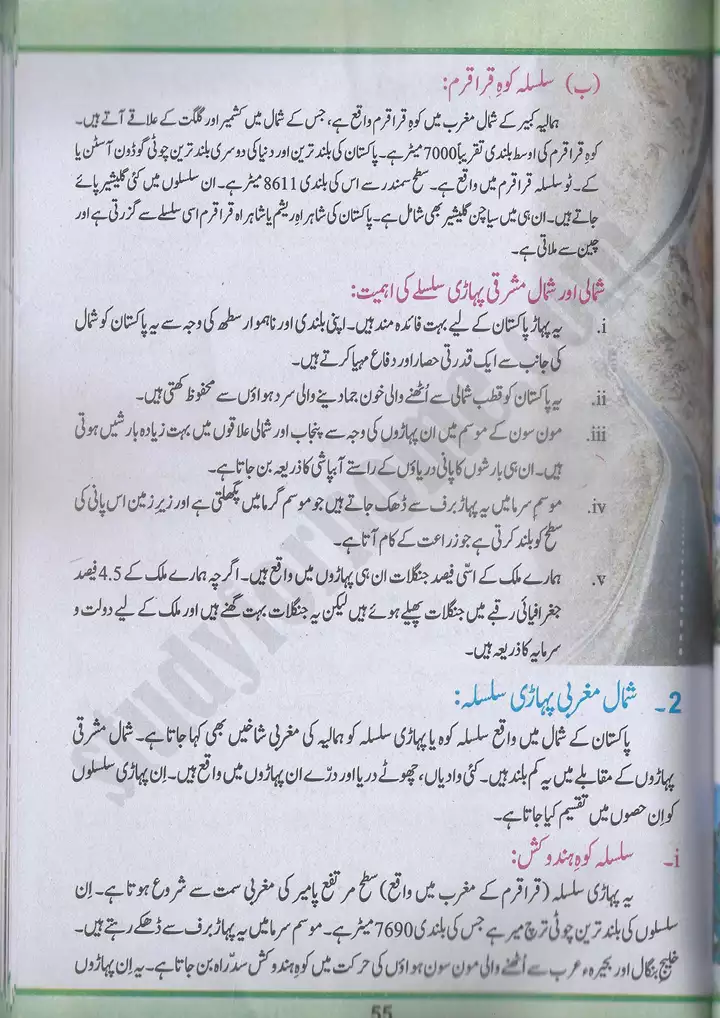 (ب) سلسلہ کوہِ قراقرم:
ہمالیہ کبیر کے شمال مغرب میں کوہِ قراقرم واقع ہے، جس کے شمال میں کشمیر اور گلگت کے علاقے آتے ہیں۔
کوہِ قراقرم کی اوسط بلندی تقریباً 7000 میٹر ہے۔ پاکستان کی بلند ترین اور دنیا کی دوسری بلند ترین چوٹی گوڈون آسٹن یا
کے۔ ٹو سلسلہ قراقرم میں واقع ہے۔ سطح سمندر سے اس کی بلندی 8611 میٹر ہے۔ ان سلسلوں میں کئی گلیشیر پائے
جاتے ہیں۔ ان ہی میں سیاچن گلیشیر بھی شامل ہے۔ پاکستان کی شاہراہِ ریشم یا شاہراہ قراقرم اسی سلسلے سے گزرتی ہے اور
چین سے ملاتی ہے۔
شمالی اور شمال مشرقی پہاڑی سلسلے کی اہمیت:
i. یہ پہاڑ پاکستان کے لیے بہت فائدہ مند ہیں۔ اپنی بلندی اور ناہموار سطح کی وجہ سے یہ پاکستان کو شمال
کی جانب سے ایک قدرتی حصار اور دفاع مہیا کرتے ہیں۔
ii. یہ پاکستان کو قطب شمالی سے اُٹھنے والی خون جما دینے والی سرد ہواؤں سے محفوظ رکھتی ہیں۔
iii. مون سون کے موسم میں ان پہاڑوں کی وجہ سے پنجاب اور شمالی علاقوں میں بہت زیادہ بارشیں ہوتی
ہیں۔ ان ہی بارشوں کا پانی دریاؤں کے راستے آبپاشی کا ذریعہ بن جاتا ہے۔
iv. موسمِ سرما میں یہ پہاڑ برف سے ڈھک جاتے ہیں جو موسم گرما میں پگھلتی ہے اور زیرِ زمین اس پانی کی
سطح کو بلند کرتی ہے جو زراعت کے کام آتا ہے۔
v. ہمارے ملک کے اسّی فیصد جنگلات ان ہی پہاڑوں میں واقع ہیں۔ اگرچہ ہمارے ملک کے 4.5 فیصد
جغرافیائی رقبے میں جنگلات پھیلے ہوئے ہیں لیکن یہ جنگلات بہت گھنے ہیں اور ملک کے لیے دولت و
سرمایہ کا ذریعہ ہیں۔
2۔ شمال مغربی پہاڑی سلسلہ:
پاکستان کے شمال میں واقع سلسلہ کوہ یا پہاڑی سلسلہ کو ہمالیہ کی مغربی شاخیں بھی کہا جاتا ہے۔ شمال مشرقی
پہاڑوں کے مقابلے میں یہ کم بلند ہیں۔ کئی وادیاں، چھوٹے دریا اور درّے ان پہاڑوں میں واقع ہیں۔ اِن پہاڑی سلسلوں
کو اِن حصوں میں تقسیم کیا جاتا ہے۔
i۔ سلسلہ کوہِ ہندوکش:
یہ پہاڑی سلسلہ (قراقرم کے مغرب میں واقع) سطح مرتفع پامیر کی مغربی سمت سے شروع ہوتا ہے۔ اِن
سلسلوں کی بلند ترین چوٹی ترچ میر ہے جس کی بلندی 7690 میٹر ہے۔ موسم سرما میں یہ پہاڑ برف سے ڈھکے رہتے ہیں۔
خلیج بنگال اور بحیرہء عرب سے اُٹھنے والی مون سون ہواؤں کی حرکت میں کوہِ ہندوکش سدّ راہ بن جاتا ہے۔ یہ اِن پہاڑوں
55
studyforhome.com